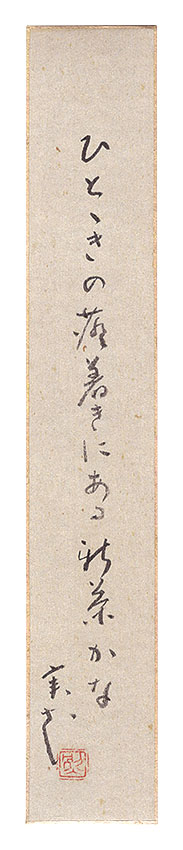 ひとゝきの落着きにある新茶かな
実花